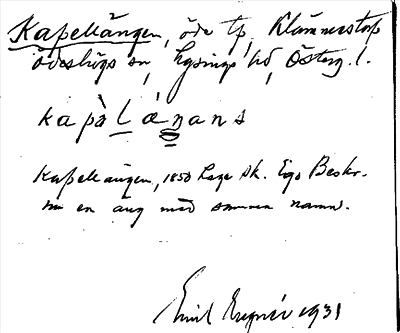 Kapellängen, öde tp, Klämmestorp
Ödeshögs sn, Lysings hd, Österg. l.
kapäläŋans
Kapellängen, 1850 Lage sk. Ego Beskr.
nu en äng med samma namn.
Emil 1931